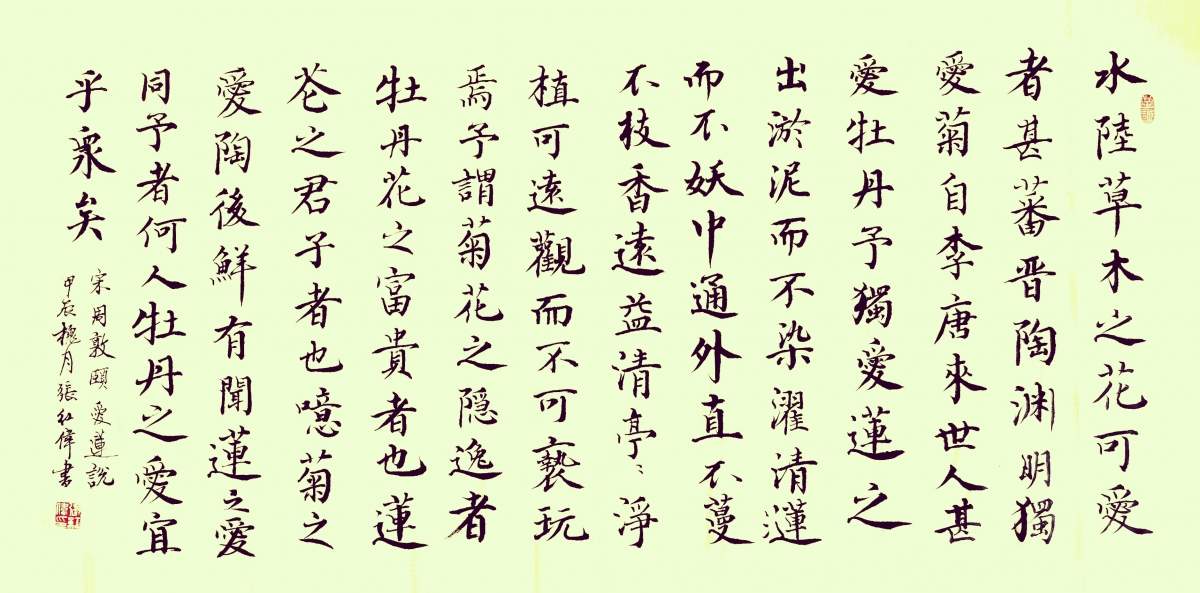 水陸草木之花可愛
者甚蕃晋陶渊明獨
愛菊自李唐來世人甚
愛牡丹予獨愛蓮之
出淤泥而不染濯清漣
而不妖中通外直不蔓
不枝香遠益清亭〻淨
植可遠觀而不可褻玩
焉予謂菊花之隐逸者
牡丹花之富貴者也蓮
花之君子者也噫菊之
愛陶後鮮有聞蓮之愛
同予者何人牡丹之愛宜
乎衆矣
宋周敦頤愛蓮説
甲辰槐月張红偉書